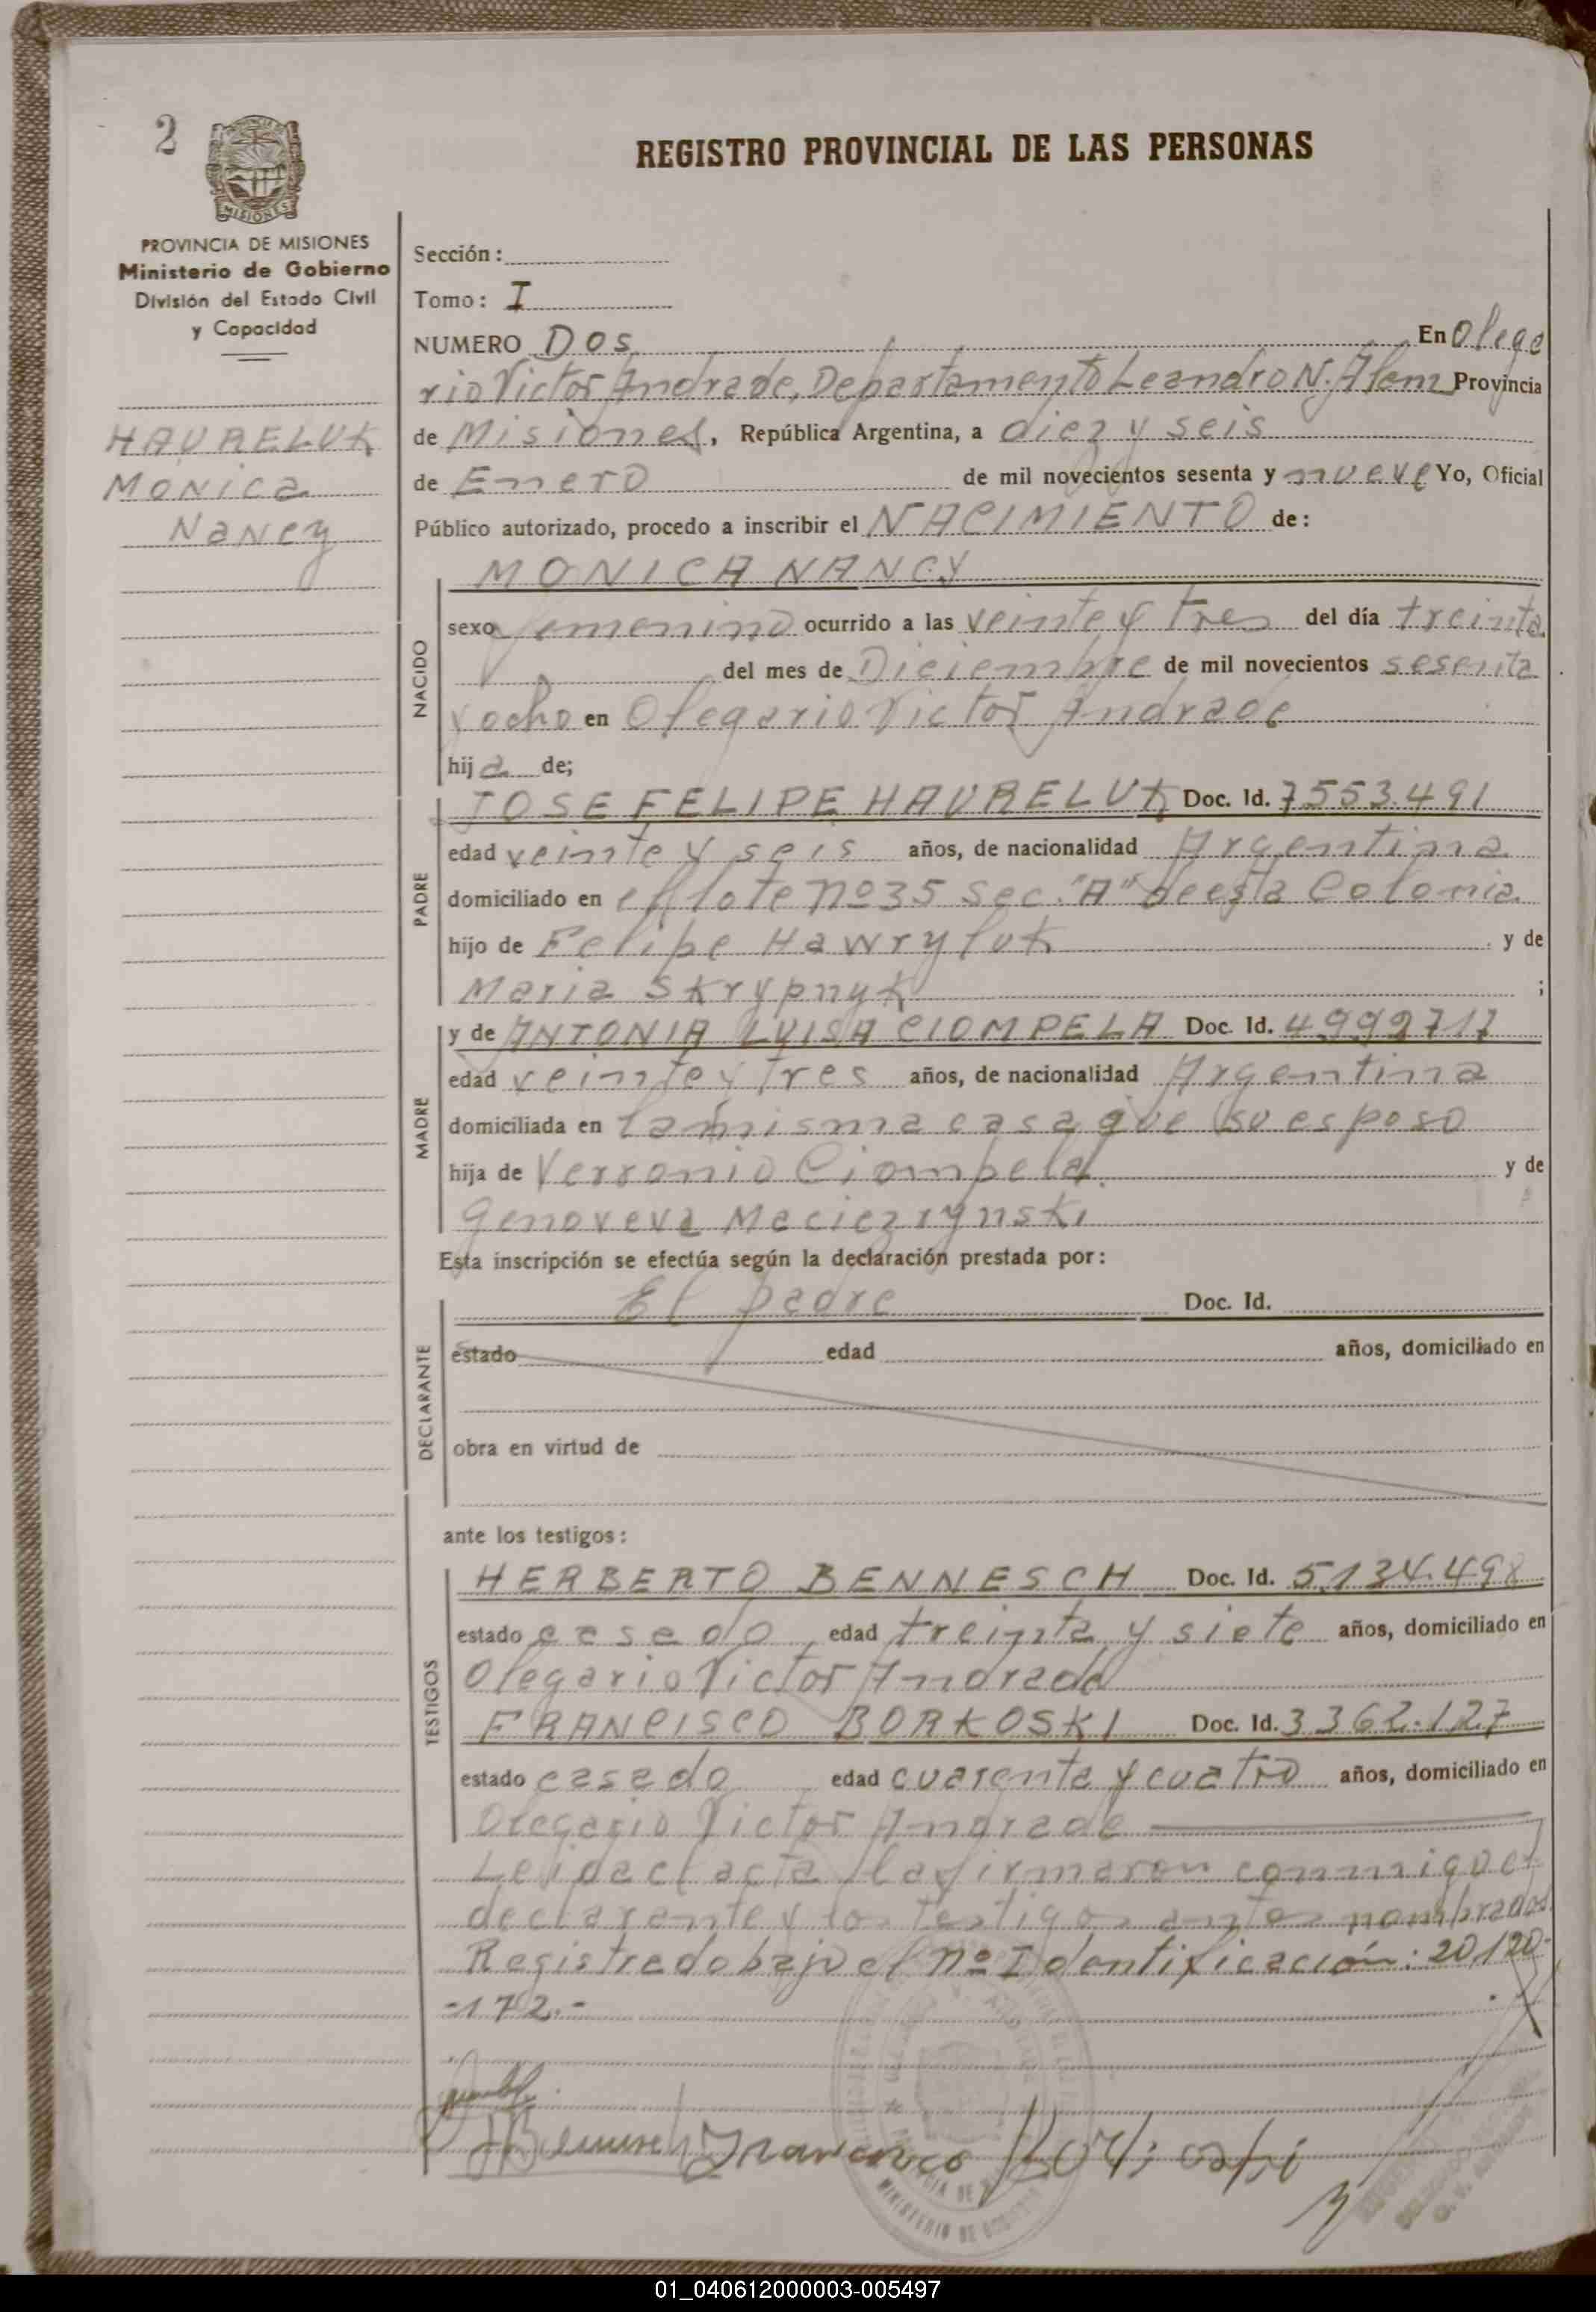 2
MISIONES
REGISTRO PROVINCIAL DE LAS PERSONAS
PROVINCIA DE MISIONES
Ministerio de Gobierno
División del Estado Civil
y Capacidad
HAURELUK
MONICA
NANCY
Sección:
Tomo: I
NUMERO DOS En Olega
rio Victor Andrade, Departamento Leandro N. Alem Provincia
de Misiones, República Argentina, a diez y seis
de Enero de mil novecientos sesenta y nueve Yo, Oficial
Público autorizado, procedo a inscribir el NACIMIENTO de:
MONICA NANCY
NACIDO
sexo femenino ocurrido a las veinte y tres del día treinta
del mes de Diciembre de mil novecientos sesenta
y ocho en Olegario Victor Andrade
hija de;
PADRE
JOSE FELIPE HAURELUK Doc. Id. 7553.491
edad veinte y seis años, de nacionalidad Argentina
domiciliado en el lote nº 35 Sec. "A" de esta Colonia
hijo de Felipe Hawryluk y de
Maria Skrypnyk ;
MADRE
y de ANTONIA LUISA CIOMPELA Doc. Id. 4992717
edad veinte y tres años, de nacionalidad Argentina
domiciliada en la misma casa que su esposo
hija de Verronio Ciompela y de
Genoveva Maciezrynski
Esta inscripción se efectúa según la declaración prestada por:
DECLARANTE
El padre Doc. Id.
estado edad años, domiciliado en
obra en virtud de
ante los testigos:
TESTIGOS
HERBERTO BENNESCH Doc. Id. 5.134.498
estado casado edad treinta y siete años, domiciliado en
Olegario Victor Andrade
FRANCISCO BORKOSKI Doc. Id. 3362.127
estado casado edad cuarenta y cuatro años, domiciliado en
Olegario Victor Andrade
Leida el acta la firmaron conmigo el
declarante y los testigos antes nombrados
Registrado bajo el nº Identificación: 20.120-
-172.-
HBennesch Francisco Borkoski
MINISTERIO DE
01_040612000003-005497